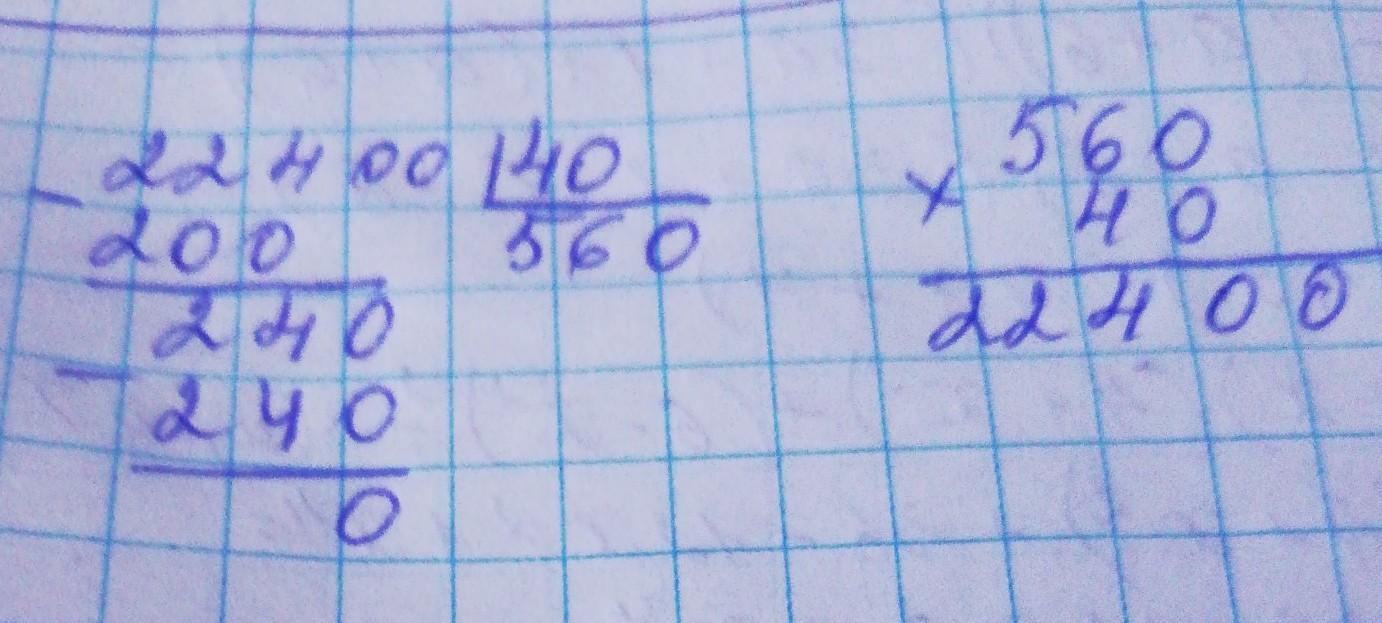 - 22400 | 40
200 560
240
- 240
0
560
× 40
22400